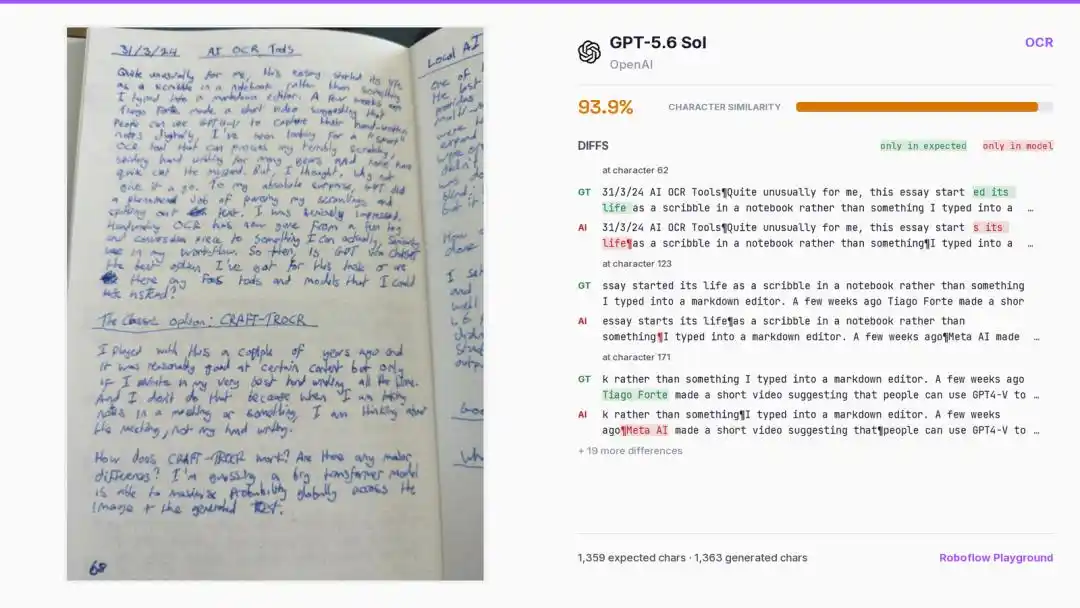 31/3/24 AI OCR Tools
Quite unusually for me, this essay started its life
as a scribble in a notebook rather than something
I typed into a markdown editor. A few weeks ago
Tiago Forte made a short video suggesting that
people can use GPT4-V to capture their hand-written
notes digitally. I've been looking for a "smart"
OCR tool that can process my terribly scratchy,
spidery hand writing for many years and none have
quite cut the mustard. But, I thought, why not
give it a go. To my absolute surprise, GPT did
a phenomenal job of parsing my scrawlings and
spitting out text. I was seriously impressed.
Handwriting OCR has now gone from a fun toy
and conversation piece to something I can actually, seriously
use in my workflow. So then, is GPT the
the best option I've got for this task or are
there any FOSS tools and models that I could
use instead?
The Classic option: CRAFT-TROCR
I played with this a couple of years ago and
it was reasonably good at certain content but only
if I wrote in my very best hand writing all the time.
And I don't do that because when I am taking
notes in a meeting or something, I am thinking about
the meeting, not my hand writing.
How does CRAFT-TROCR work? Are there any major
differences? I'm guessing a big transformer model
is able to maximise probability globally across the
image + the generated text.
68
Local AI
one of
the last
were
expand
blind.
but it
How
done
I set
and
well
outp
GPT-5.6 Sol
OpenAI
OCR
93.9% CHARACTER SIMILARITY
DIFFS only in expected only in model
at character 62
GT 31/3/24 AI OCR Tools¶Quite unusually for me, this essay start ed its
life as a scribble in a notebook rather than something I typed into a …
AI 31/3/24 AI OCR Tools¶Quite unusually for me, this essay start s its
life¶as a scribble in a notebook rather than something¶I typed into a …
at character 123
GT ssay started its life as a scribble in a notebook rather than something
I typed into a markdown editor. A few weeks ago Tiago Forte made a shor
AI essay starts its life¶as a scribble in a notebook rather than
something¶I typed into a markdown editor. A few weeks ago¶Meta AI made …
at character 171
GT k rather than something I typed into a markdown editor. A few weeks ago
Tiago Forte made a short video suggesting that people can use GPT4-V to …
AI k rather than something¶I typed into a markdown editor. A few weeks
ago¶Meta AI made a short video suggesting that¶people can use GPT4-V to …
+ 19 more differences
1,359 expected chars · 1,363 generated chars
Roboflow Playground